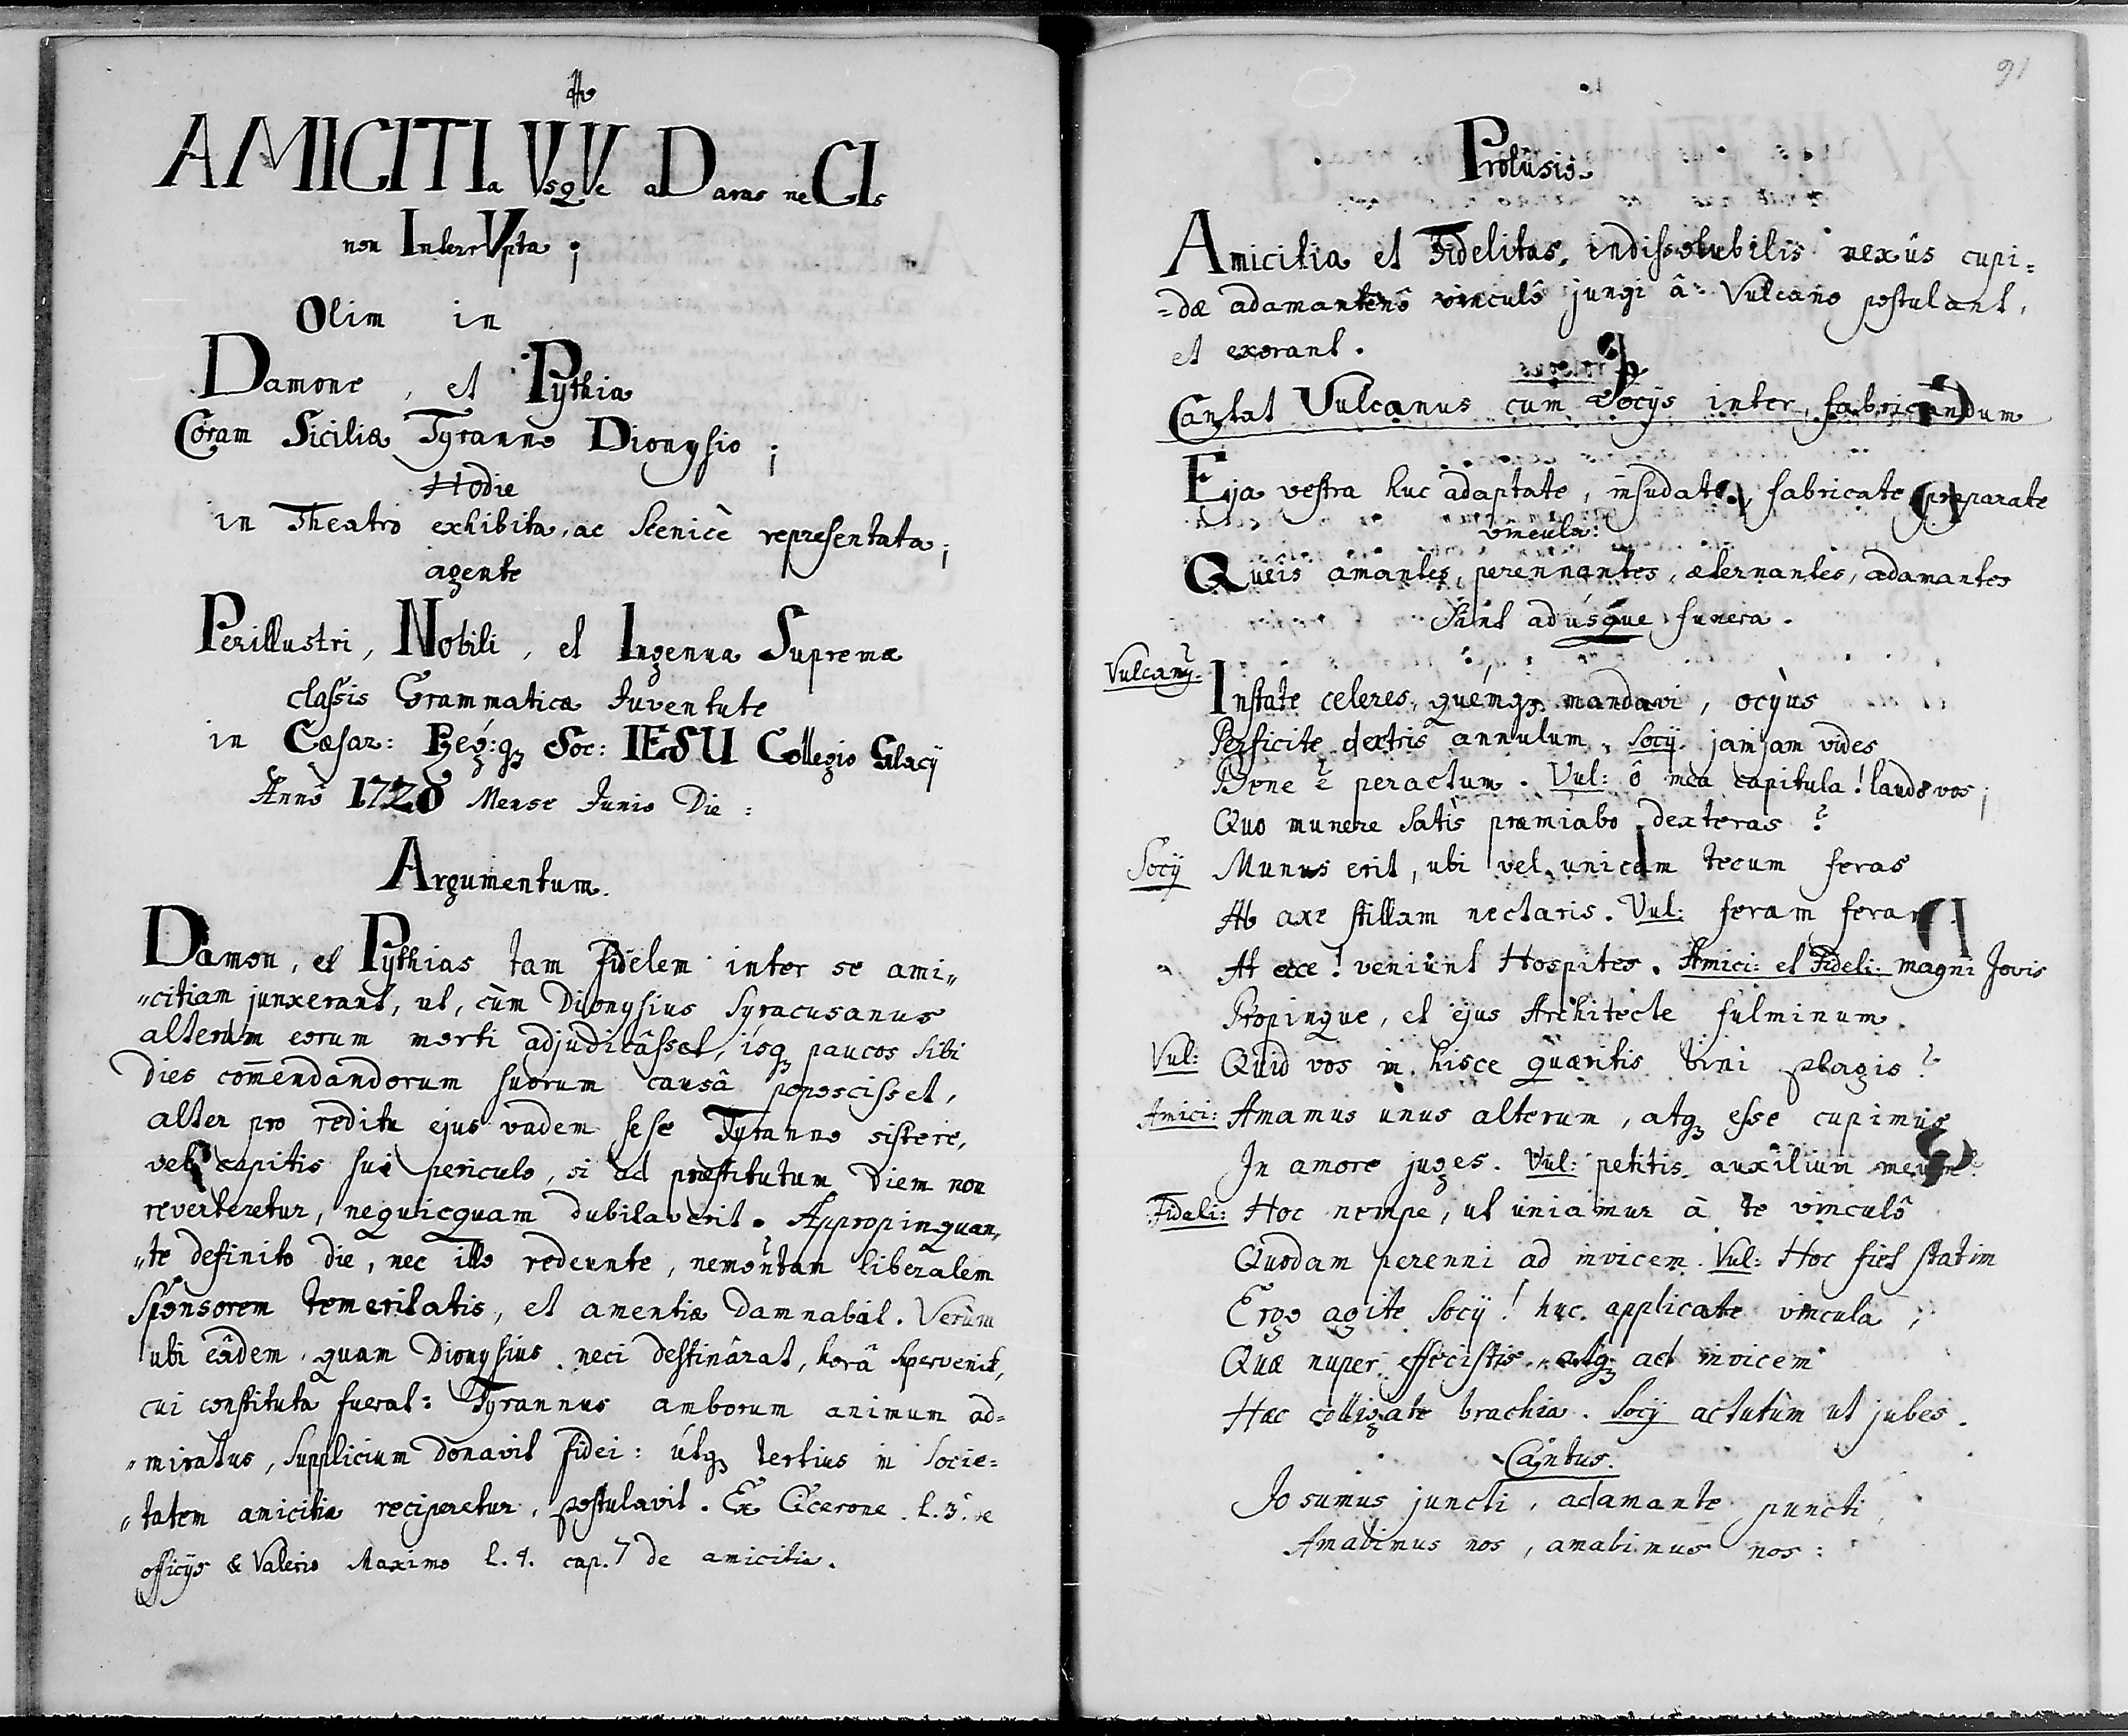 AMICITIa VsqVe aD aras neCIs
non InterrVpta ;
Olim in
Damone, et Pythia
Coram Siciliæ Tyranno Dionysio ;
Hodie
in Theatro exhibita, ac scenicè repræsentata ;
agente
Perillustri, Nobili, et Ingenua Supremæ
classis Grammaticæ Juventute
in Cæsar: Reg:q₃ Soc: IESU Collegio Glacij
Annô 1728 Mense Junio Die :
Argumentum.
Damon, et Pythias tam fidelem inter se ami„
„citiam junxerant, ut, cùm Dionysius Syracusanus
alterum eorum morti adjudicâsset, isq₃ paucos sibi
dies com̄endandorum suorum causâ poposcisset,
alter pro reditu ejus vadem sese Tyranno sistere,
vel capitis sui periculo, si ad præstitutum Diem non
reverteretur, nequicquam dubitaverit. Appropinquan„
„te definito die, nec illo redeunte, nemo tam liberalem
sponsorem temeritatis, et amentiæ damnabat. Verùm
ubi eâdem, quam Dionysius neci destinârat, horâ supervenit,
cui constituta fuerat: Tyrannus amborum animum ad=
„miratus, supplicium donavit fidei: útq₃ tertius in socie=
„tatem amicitiæ reciperetur, postulavit. Ex Cicerone l. 3. de
officijs & Valerio Maximo l. 4. cap. 7 de amicitia.
91
Prolusio.
Amicitia et Fidelitas, indissolubilis nexûs cupi=
=dæ adamantinô vinculô jungi â Vulcano postulant,
et exorant.
Cantat Vulcanus cum socijs inter fabricandum
Eja vestra huc adaptate, insudate, fabricate præparate
vincula:
Queis amantes, perennantes, æternantes, adamantes
Sint adúsque funera.
Vulcanus. Instate celeres, quémq₃ mandavi, ocyùs
Perficite dextris annulum. Socij. jamjam vides
Bene peractum. Vul: ô mea capitula! laudo vos ;
Quo munere satìs præmiabo dexteras ?
Socij Munus erit, ubi vel unicam tecum feras
Ab axe stillam nectaris. Vul: feram feram.
At ecce! veniunt Hospites. Amici: et Fideli: magni Jovis
Propinque, et ejus Architecte fulminum.
Vul: Quid vos in hisce quæritis bini plagis ?
Amici: Amamus unus alterum, atq₃ esse cupimus
In amore juges. Vul: petitis auxilium meum?
Fideli: Hoc nempe, ut uniamur à te vinculô
Quodam perenni ad invicem. Vul: Hoc fiet statim
Ergo agite Socij! huc applicate vincula ;
Quæ nuper effecistis, atq₃ ad invicem
Hæc colligate brachia. Socij actutùm ut jubes.
Cantus.
Jo sumus juncti, adamante puncti
Amabimus nos, amabimus nos :